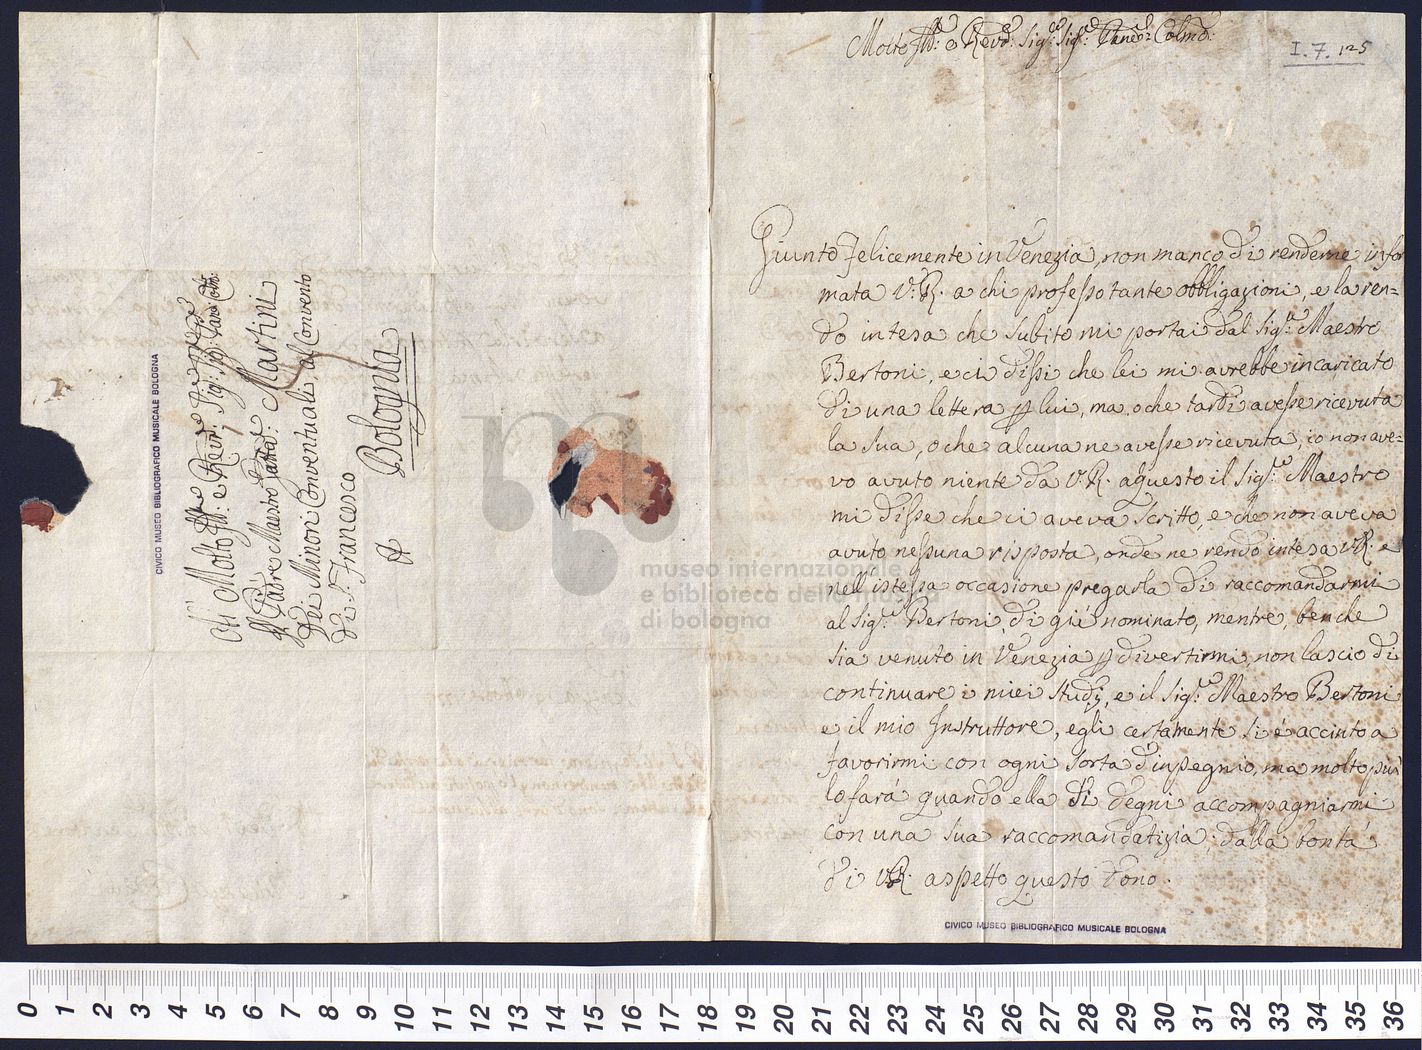 Molto Ill:re e Rev:do Sig:r Sig:r Pane Colmo:
I.7.125
Giunto Felicemente in Venezia, non manco di renderne infor
mata V:R. a chi professo tante obbligazioni, e la ren=
do intesa che subito mi portai dal Sig:r Maestro
Bertoni, e ci dissi che lei mi avrebbe incaricato
di una lettera p lui, ma o che tardi avesse ricevuta
la sua, o che alcuna ne avesse ricevuta, io non ave-
vo avuto niente da V:R. a questo il Sig:r Maestro
mi disse che ci aveva scritto, e che non aveva
avuto nessuna risposta, onde ne rendo intesa V:R. e
nell'istessa occasione pregarla di raccomandarmi
al Sig:r Bertoni di già nominato, mentre, benche
sia venuto in Venezia p divertirmi, non lascio di
continuare i miei studj, e il Sig:r Maestro Bertoni
e il mio Instruttore, egli certamente si è accinto a
favorirmi con ogni sorta d'inpegnio, ma molto più
lo farà quando ella si degni accompagniarmi
con una sua raccomandatizia, dalla bontà
di V:R. aspetto questo dono.
CIVICO MUSEO BIBLIOGRAFICO MUSICALE BOLOGNA
Al Molto Ill:re e Rev:do
Sig:r Sig:r Pane Colmo:
Il Padre Maestro Martini
Dei Minori Conventuali al Convento
di S. Francesco
A Bologna
CIVICO MUSEO BIBLIOGRAFICO MUSICALE BOLOGNA
museo internazionale
e biblioteca della musica
di bologna
0 1 2 3 4 5 6 7 8 9 10 11 12 13 14 15 16 17 18 19 20 21 22 23 24 25 26 27 28 29 30 31 32 33 34 35 36